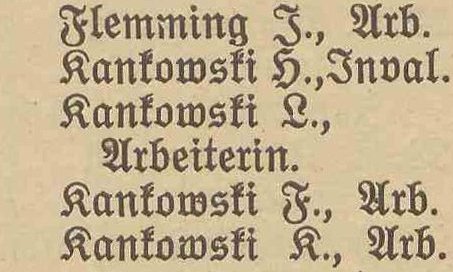 Flemming J., Arb.
Kankowski H., Inval.
Kankowski L.,
Arbeiterin.
Kankowski F., Arb.
Kankowski K., Arb.